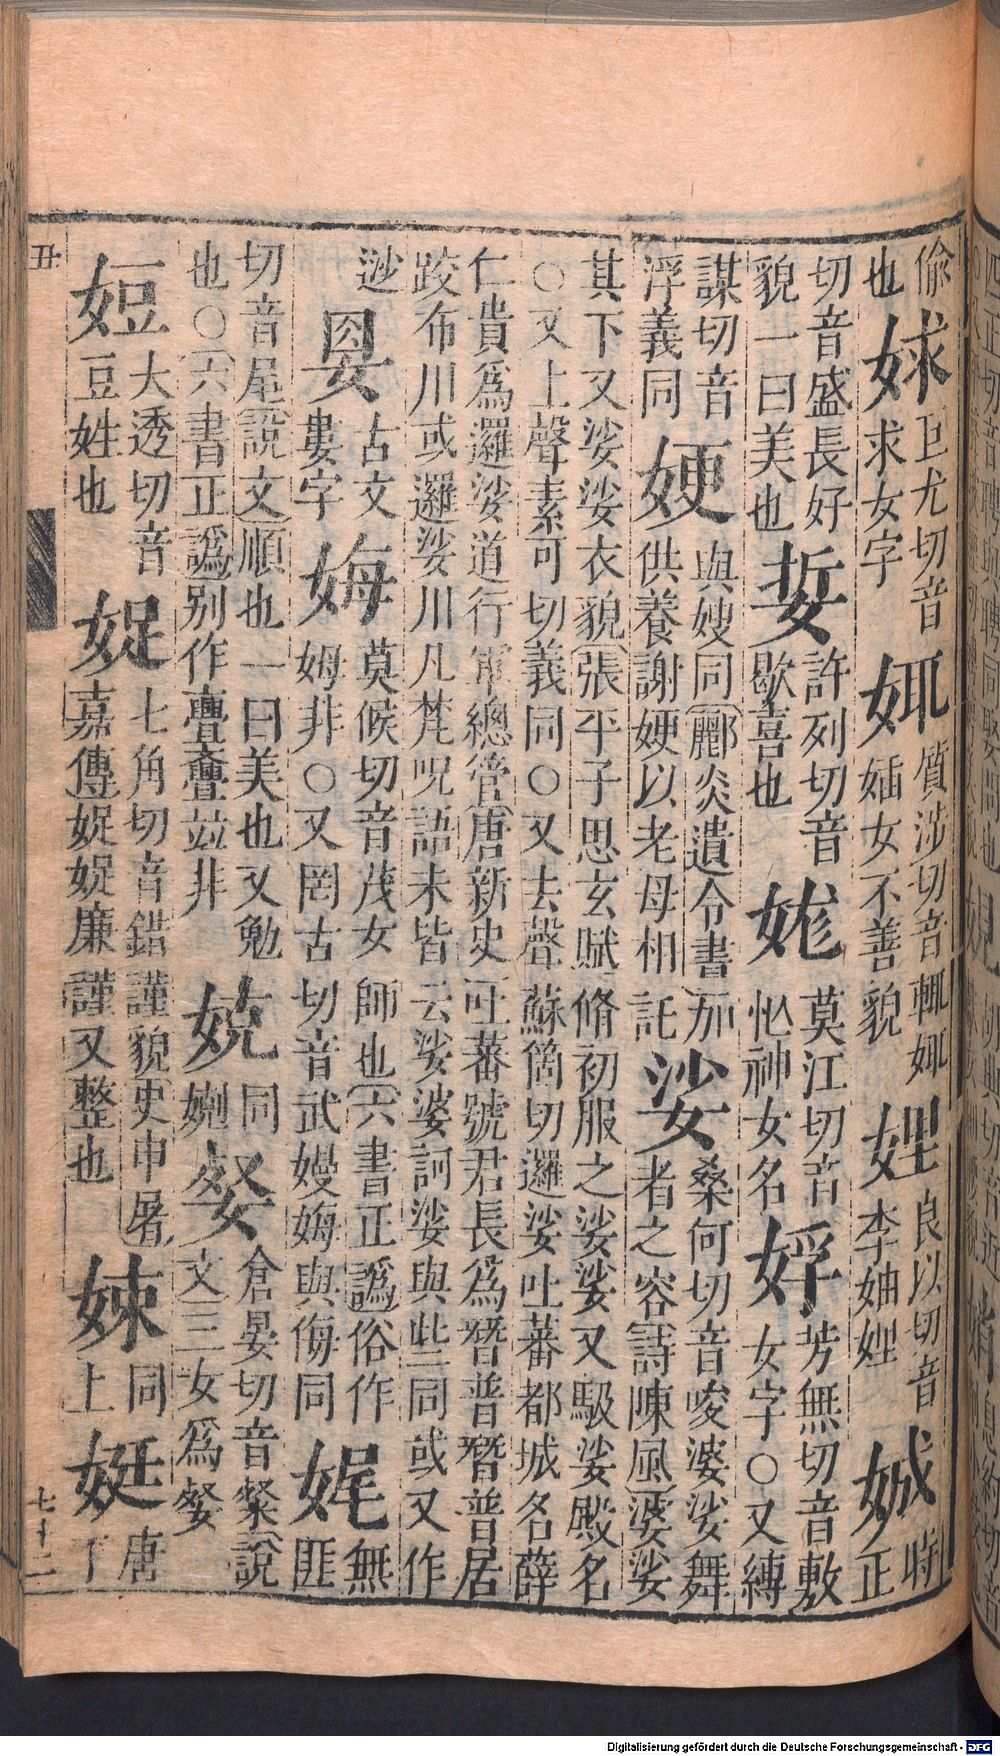 偷也
㛏 巨尤切音求女字
㛅 質涉切音輒㛅婳女不善貌
娌 良以切音李妯娌
娍 時正切音盛長好貌一曰美也
娎 許列切音歇喜也
娏 莫江切音忙神女名
娐 芳無切音敷女字○又縛謀切音浮義同
㛐 與嫂同酈炎遺令書供養謝㛐以老母相託
娑 桑何切音唆婆娑舞者之容詩陳風婆娑其下又娑娑衣貌張平子思玄賦脩初服之娑娑又馺娑殿名○又上聲素可切義同○又去聲蘇箇切邏娑吐蕃都城名薛仁貴爲邏娑道行軍總管唐新史吐蕃號君長爲瞀普瞀普居跤布川或邏娑川凡梵呪語未皆云娑婆訶娑與些同或又作逤
㛐 古文婁字
娒 莫候切音茂女師也六書正譌俗作姆非○又罔古切音武嫚娒與侮同
娓 無匪切音尾說文順也一曰美也又勉也○六書正譌別作亹斖竝非
娧 同㜕
㛑 倉晏切音粲說文三女爲㛑
䇺 大透切音豆姓也
娖 七角切音錯謹貌史申屠嘉傳娖娖廉謹又整也
娕 同上
娗 唐丁
丑
七十二
Digitalisierung gefördert durch die Deutsche Forschungsgemeinschaft - DFG